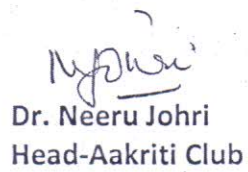 Dr. Neeru Johri
Head-Aakriti Club